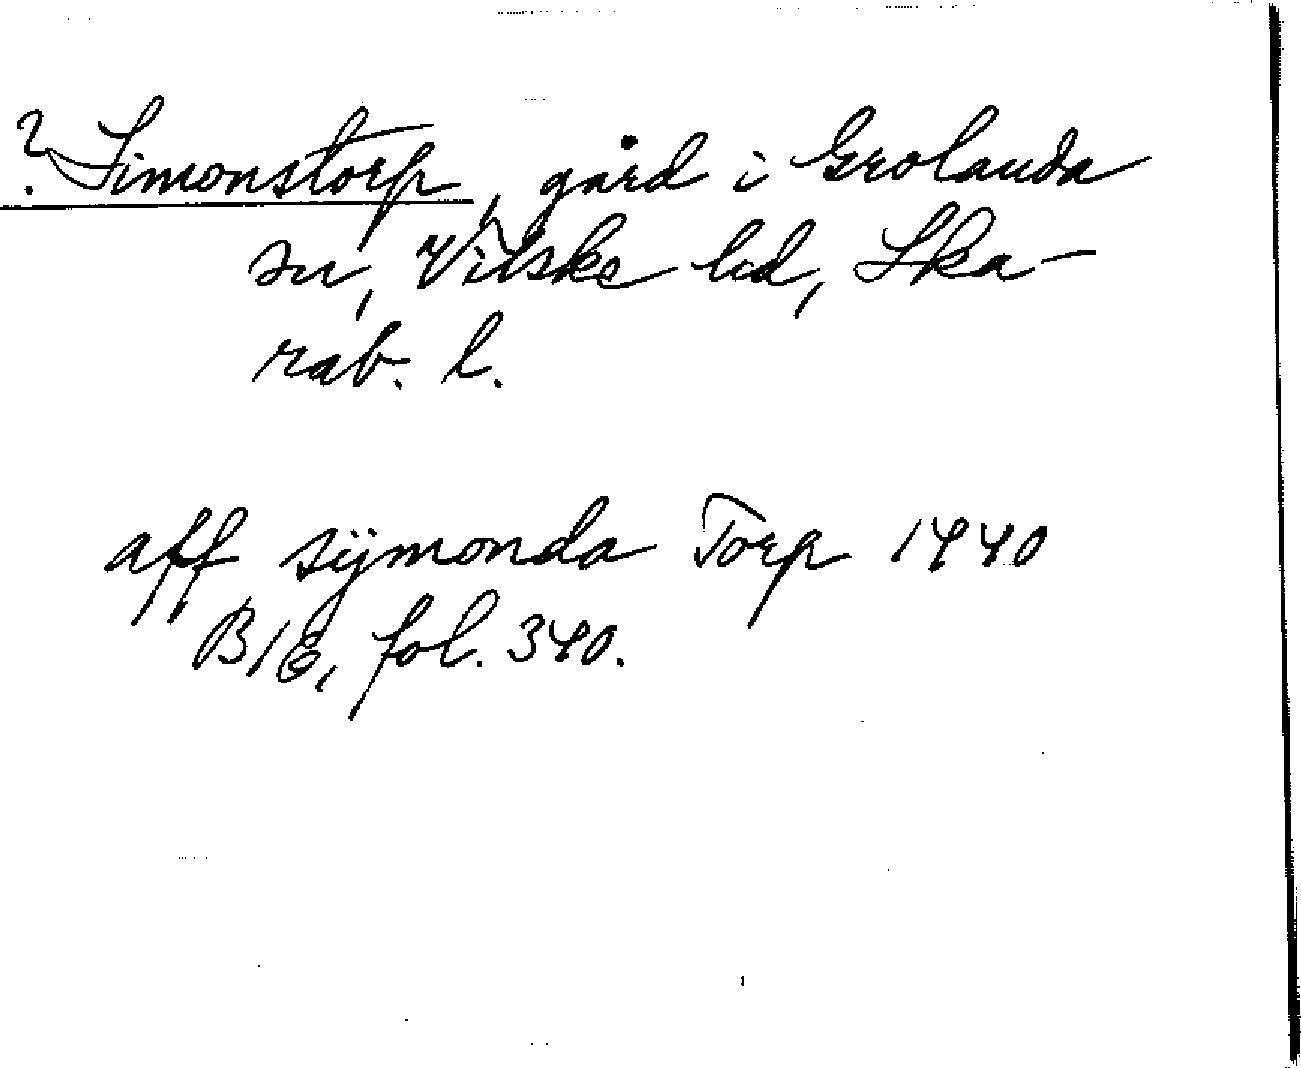 ? Simonstorp, gård i Grolanda
sn, Vilske hd, Ska-
rab. l.
aff sÿmonda Torp 1440
B16, fol. 340.